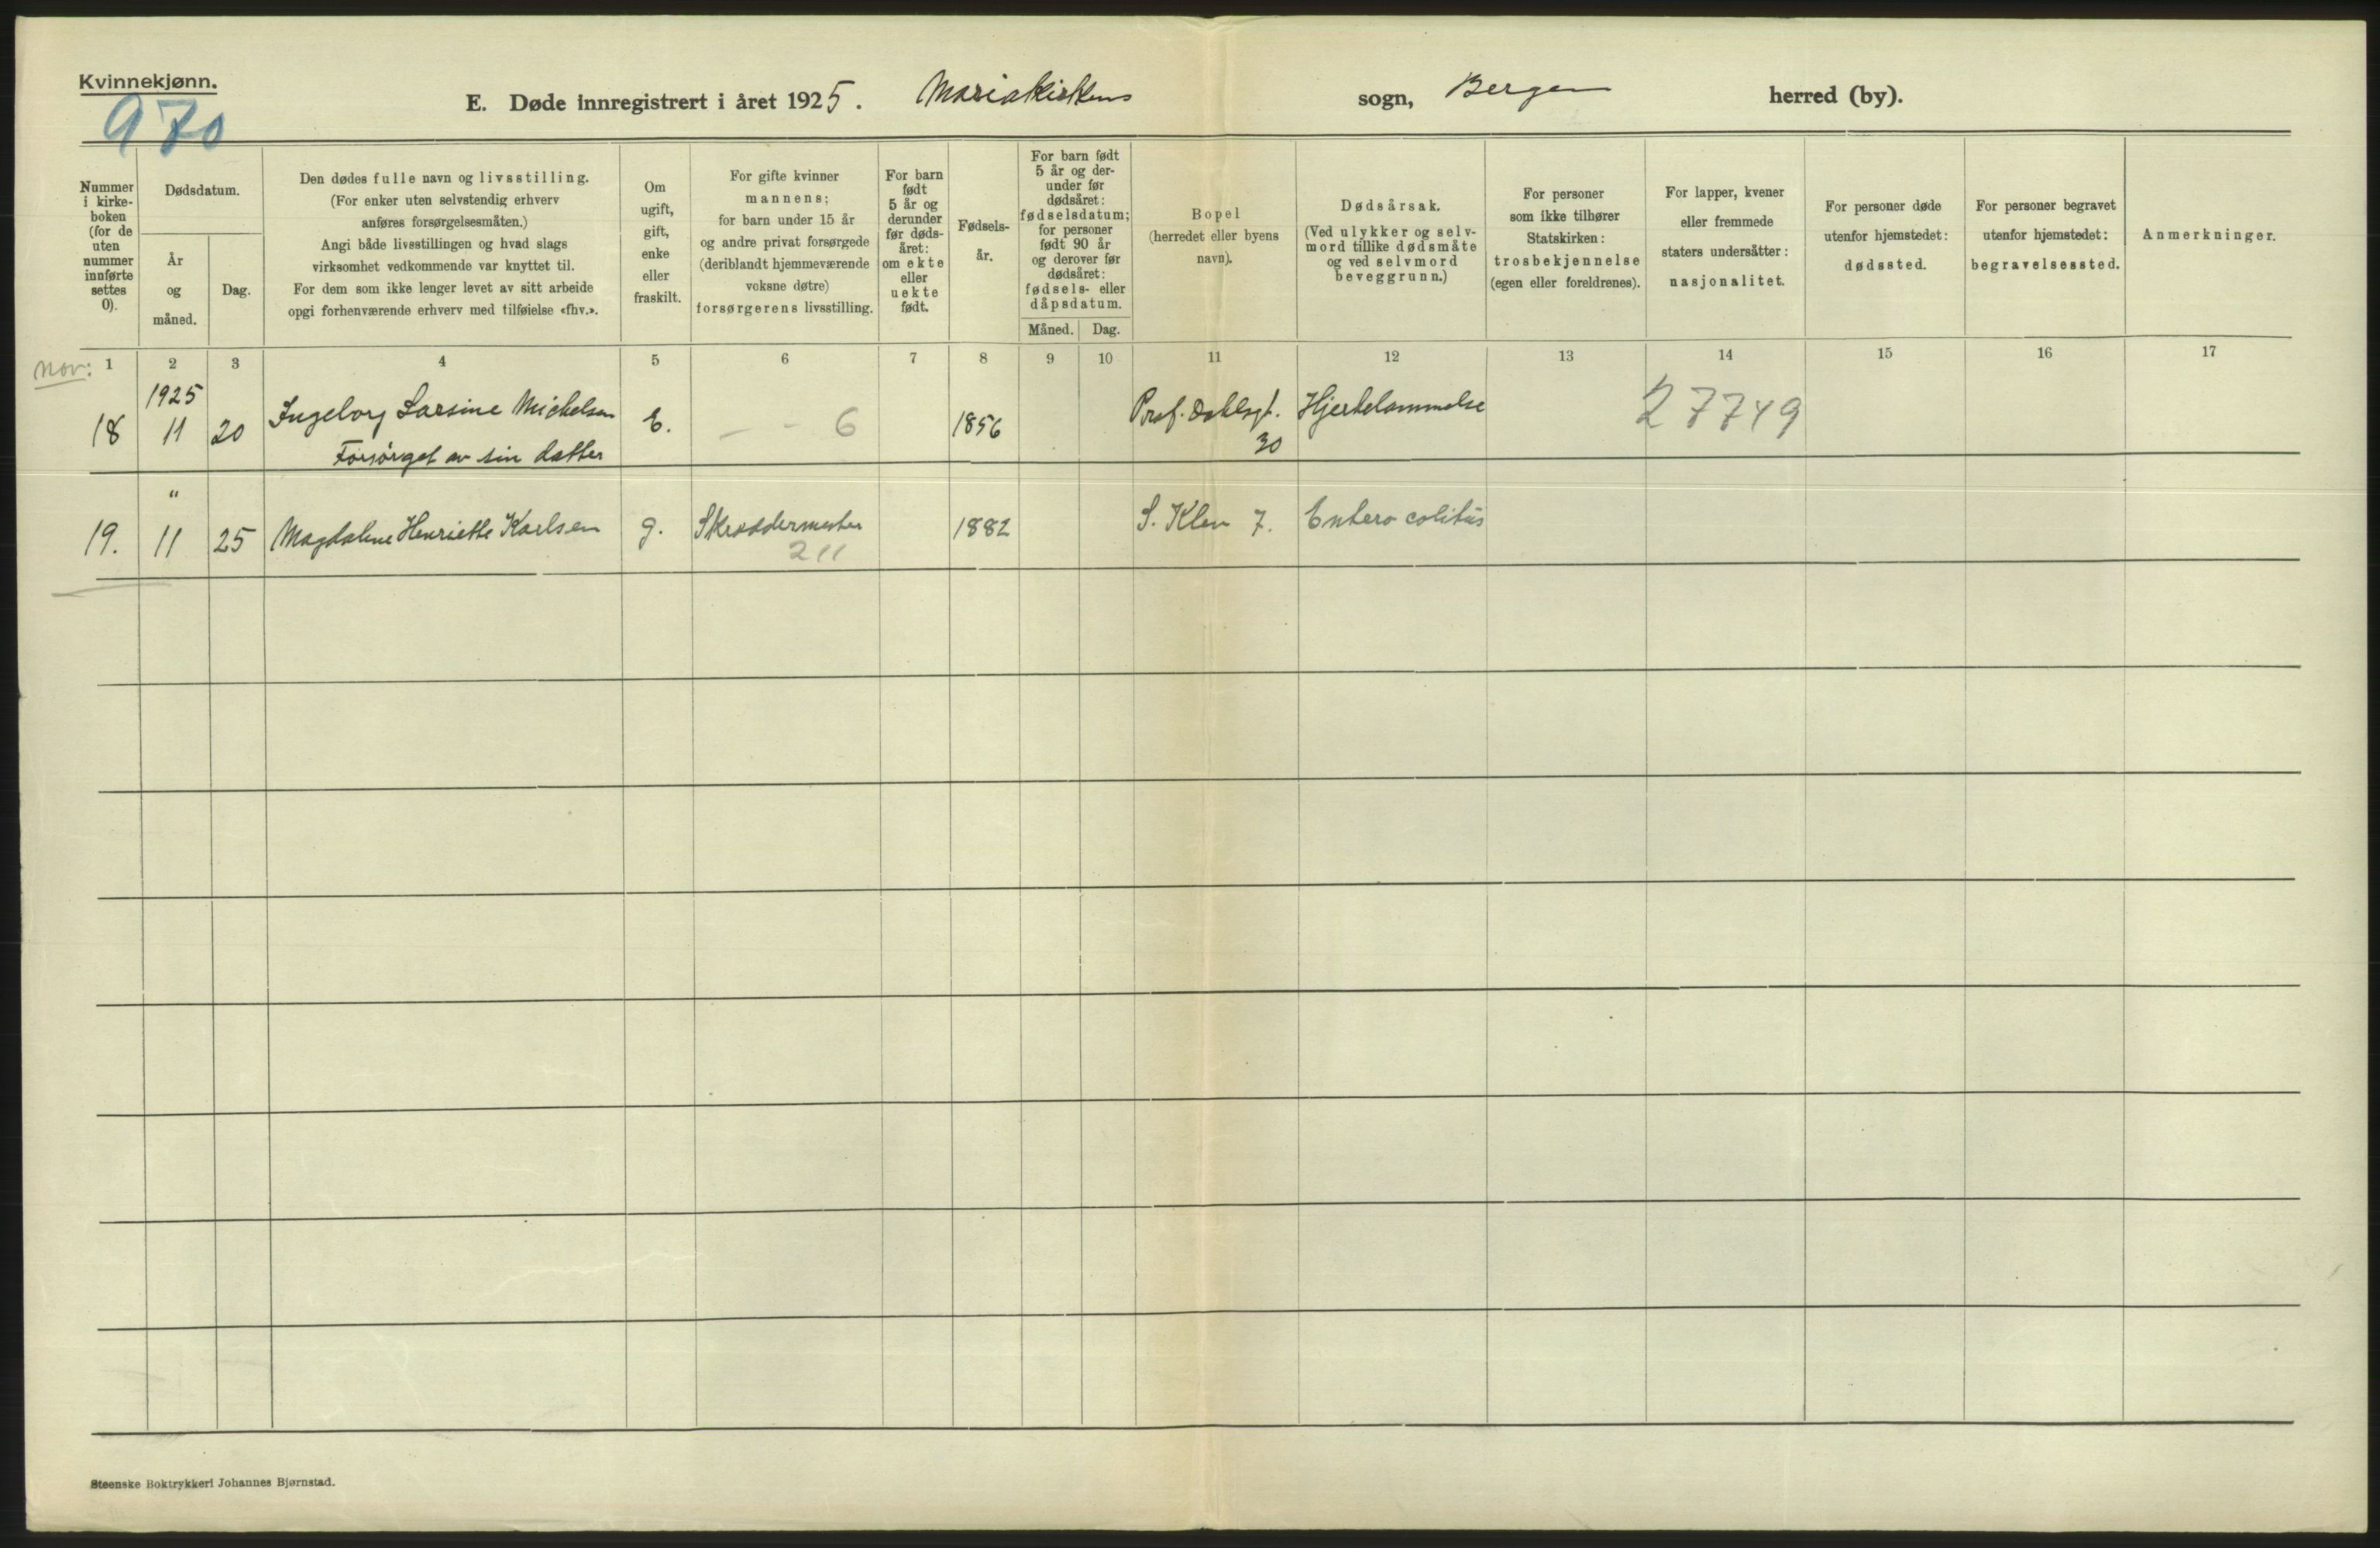 Kvinnekjønn.
970
E. Døde innregistrert i året 1925. Mariakirkens sogn, Bergen herred (by).
Nummer
i kirke-
boken
(for de
uten
nummer
innførte
settes
0).
Dødsdatum.
År
og
måned.
Dag.
Den dødes fulle navn og livsstilling.
(For enker uten selvstendig erhverv
anføres forsørgelsesmåten.)
Angi både livsstillingen og hvad slags
virksomhet vedkommende var knyttet til.
For dem som ikke lenger levet av sitt arbeide
opgi forhenværende erhverv med tilføielse «fhv.».
Om
ugift,
gift,
enke
eller
fraskilt.
For gifte kvinner
mannens;
for barn under 15 år
og andre privat forsørgede
(deriblandt hjemmeværende
voksne døtre)
forsørgerens livsstilling.
For barn
født
5 år og
derunder
før døds-
året:
om ekte
eller
uekte
født.
Fødsels-
år.
For barn født
5 år og der-
under før
dødsåret:
fødselsdatum;
for personer
født 90 år
og derover før
dødsåret:
fødsels- eller
dåpsdatum.
Måned. Dag.
Bopel
(herredet eller byens
navn).
Dødsårsak.
(Ved ulykker og selv-
mord tillike dødsmåte
og ved selvmord
beveggrunn.)
For personer
som ikke tilhører
Statskirken:
trosbekjennelse
(egen eller foreldrenes).
For lapper, kvener
eller fremmede
staters undersåtter:
nasjonalitet.
For personer døde
utenfor hjemstedet:
dødssted.
For personer begravet
utenfor hjemstedet:
begravelsessted.
Anmerkninger.
nov: 1 2 3 4 5 6 7 8 9 10 11 12 13 14 15 16 17
1925
18 11 20 Ingeborg Larsine Michelsen E. — - 6 1856 Prof. Dahlsgt. Hjertelammelse 27749
Forsørget av sin datter 30
"
19. 11 25 Magdalene Henriette Karlsen g. Skreddermester 1882 S. Klev 7. Entero colitus
211
Steenske Boktrykkeri Johannes Bjørnstad.